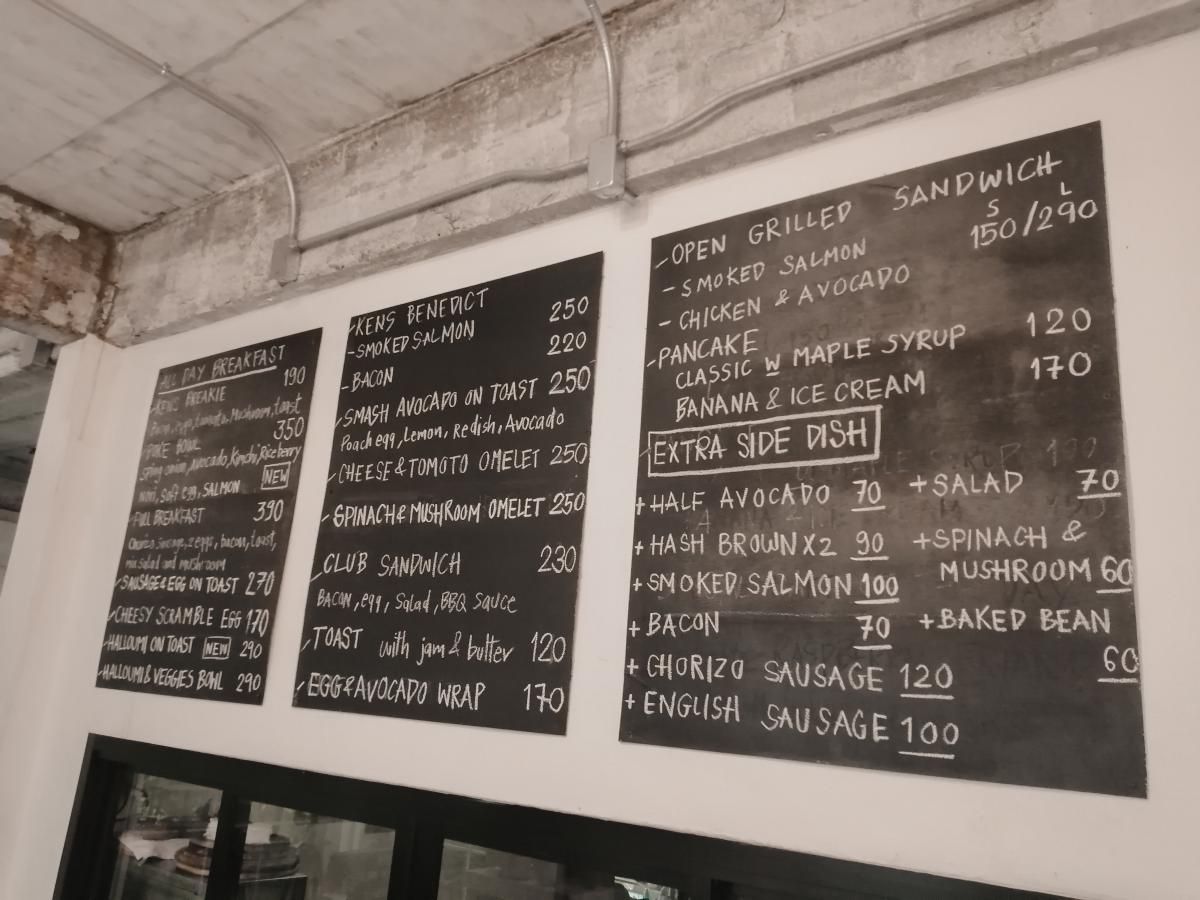 ALL DAY BREAKFAST
KENS BREAKIE 190
egg, tomato, Mushroom, toast
POKE BOWL 350
Spring onion, Avocado, Kimchi, Rice berry
nori, soft egg, SALMON NEW
FULL BREAKFAST 390
Chorizo Sausage, 2 eggs, bacon, toast,
mix salad and mushroom
SAUSAGE & EGG ON TOAST 270
CHEESY SCRAMBLE EGG 170
HALLOUMI ON TOAST NEW 290
HALLOUMI & VEGGIES BOWL 290
KENS BENEDICT
-SMOKED SALMON 250
-BACON 220
SMASH AVOCADO ON TOAST 250
Poach egg, Lemon, Redish, Avocado
CHEESE & TOMOTO OMELET 250
SPINACH & MUSHROOM OMELET 250
CLUB SANDWICH 230
BACON, egg, Salad, BBQ Sauce
TOAST with jam & butter 120
EGG & AVOCADO WRAP 170
OPEN GRILLED SANDWICH
S L
- SMOKED SALMON 150/290
- CHICKEN & AVOCADO
PANCAKE
CLASSIC W MAPLE SYRUP 120
BANANA & ICE CREAM 170
EXTRA SIDE DISH
+ HALF AVOCADO 70
+ HASH BROWN X2 90
+ SMOKED SALMON 100
+ BACON 70
+ CHORIZO SAUSAGE 120
+ ENGLISH SAUSAGE 100
+ SALAD 70
+ SPINACH &
MUSHROOM 60
+ BAKED BEAN
60